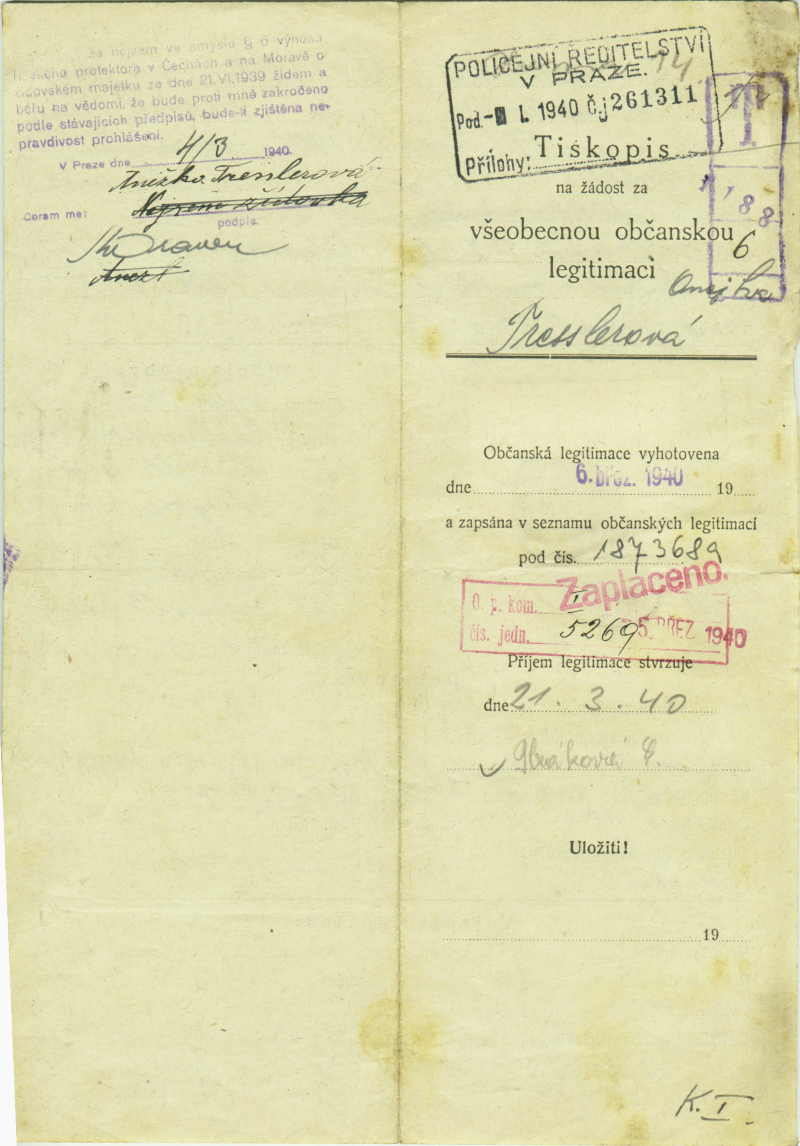 za nejsem ve smyslu § 6 výnosu
protektora v Čechách a na Moravě o
židovském majetku ze dne 21.VI.1939 židem a
béřu na vědomí, že bude proti mně zakročeno
podle stávajících předpisů, bude-li zjištěna ne-
pravdivost prohlášení.
V Praze dne 4/3 1940.
Anežka Tresslerová
Nejsem židovka
Coram me:
podpis.
POLICEJNÍ ŘEDITELSTVÍ
V PRAZE.
14
Pod.- I. 1940 Č.j 261311
Přílohy:
Tiskopis
na žádost za
všeobecnou občanskou
88
6
legitimaci
Anežka
Tresslerová
Občanská legitimace vyhotovena
dne 6. břez. 1940 19
a zapsána v seznamu občanských legitimací
pod čís. 1873689
Zaplaceno.
O. p. kom. I
čís. jedn. 5269 5. BŘEZ 1940
Příjem legitimace stvrzuje
dne 21. 3. 40
Uložiti!
19
K. I